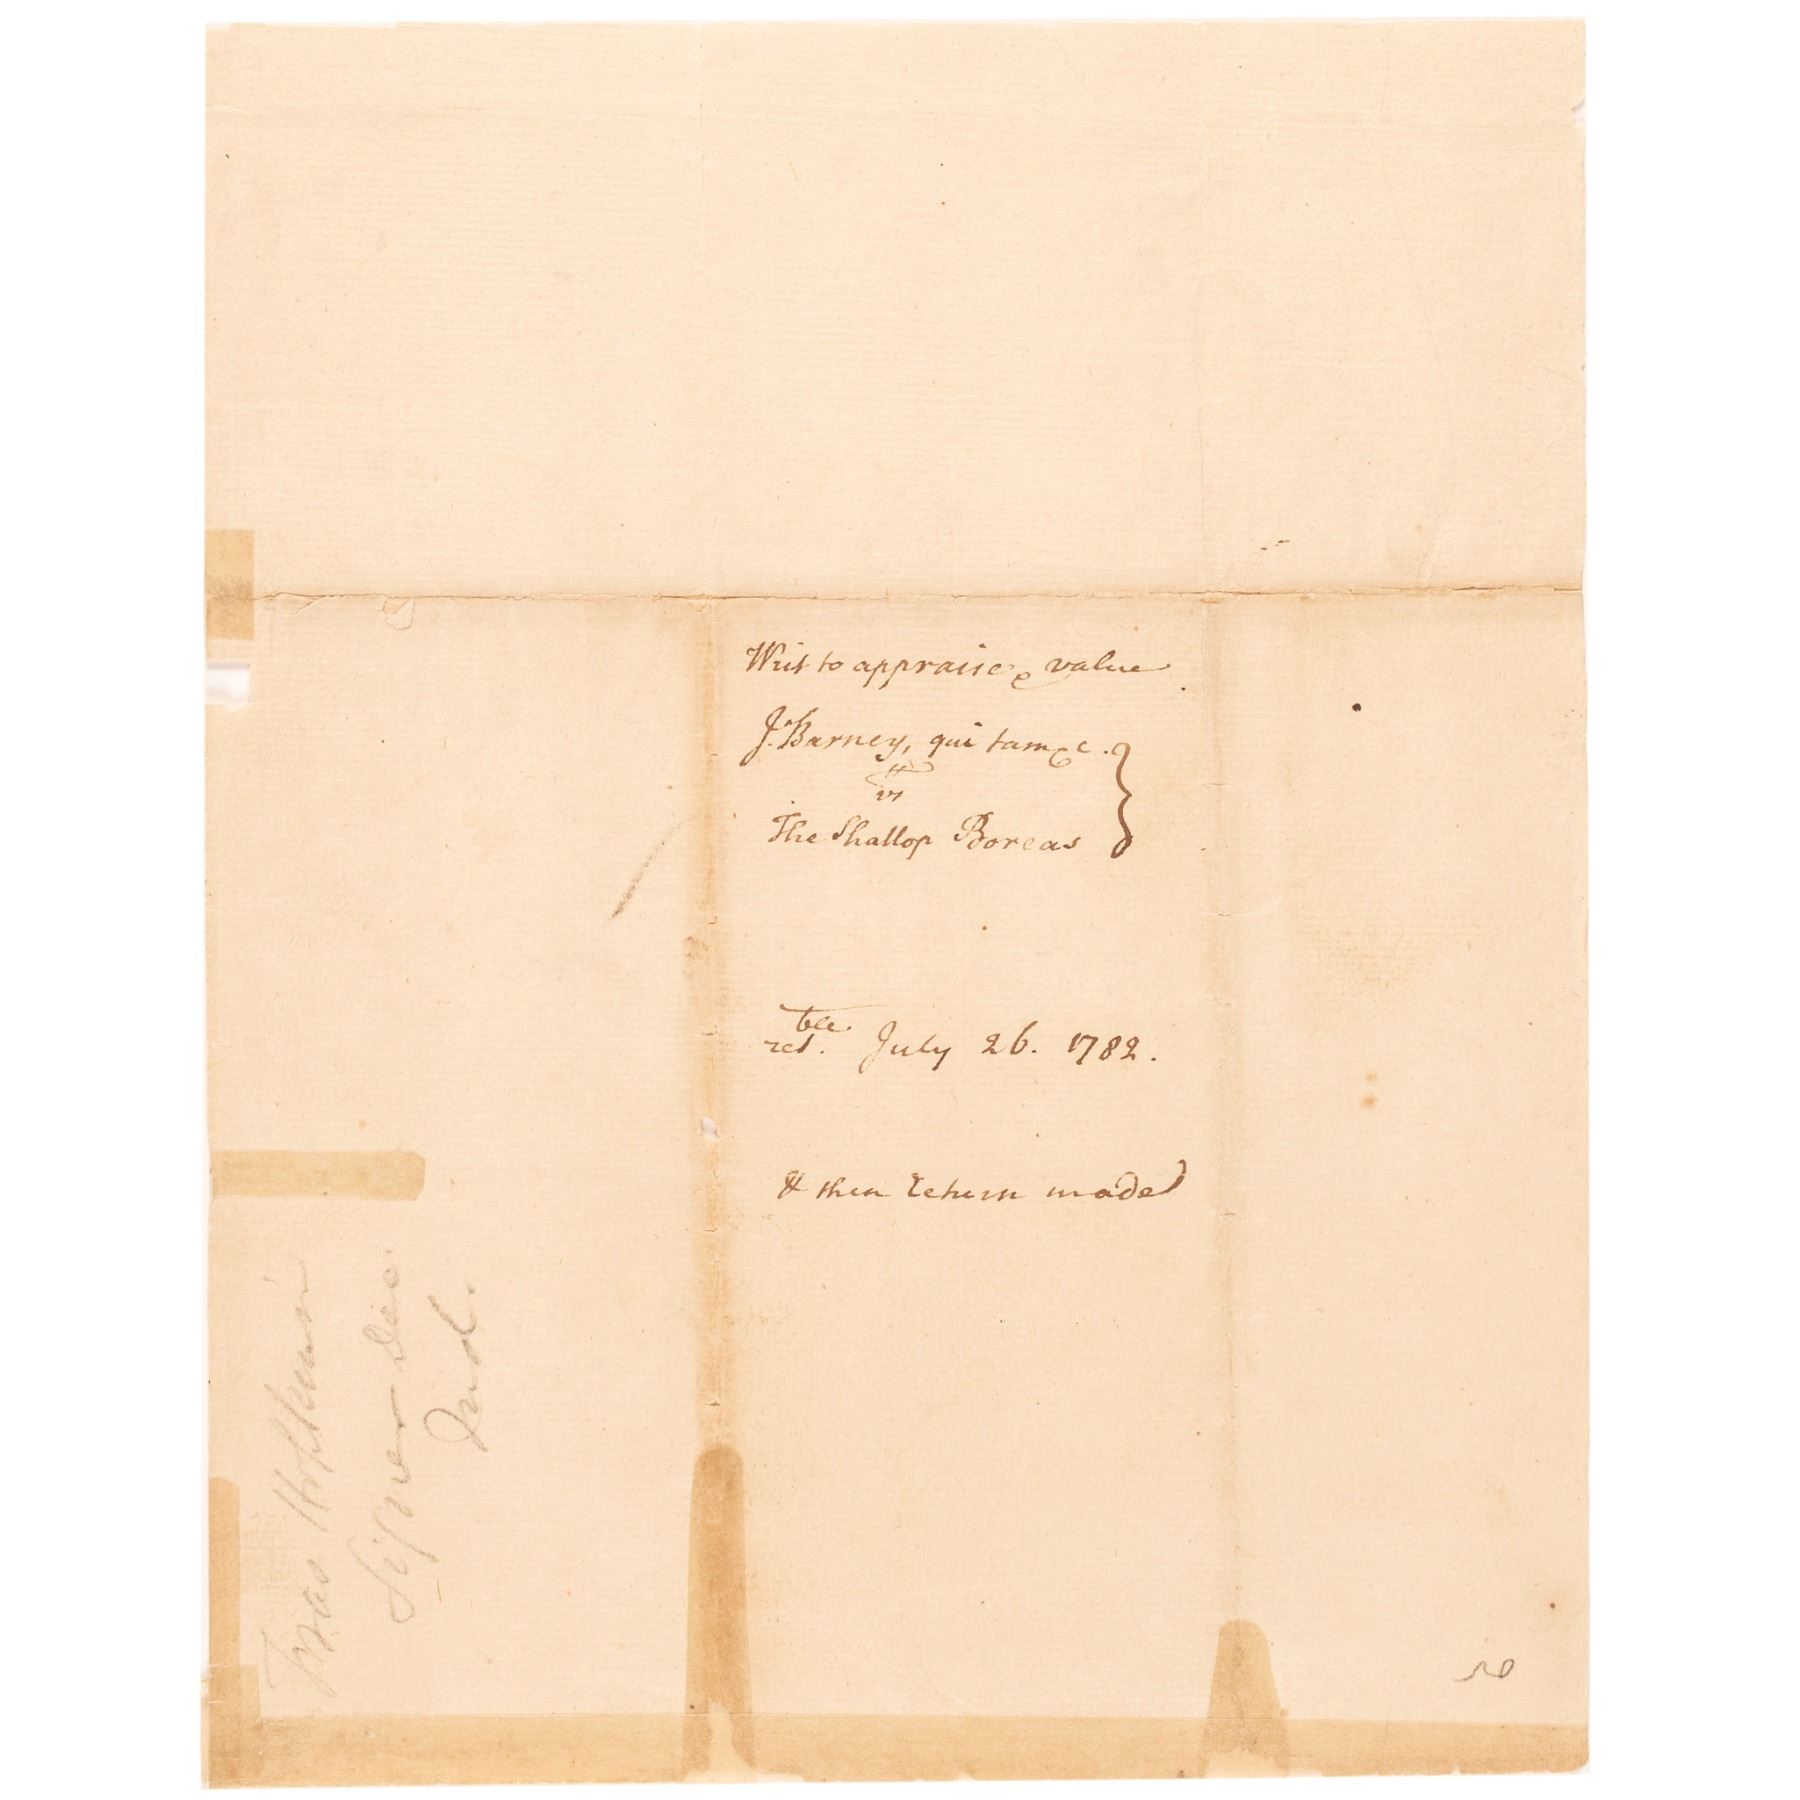 Writ to appraise & value
J. Barney, qui tam &c.
vs
The Shallop Boreas
ret.ble July 26. 1782.
& then return made
Fras Hopkinson
Signer Dec
Ind.